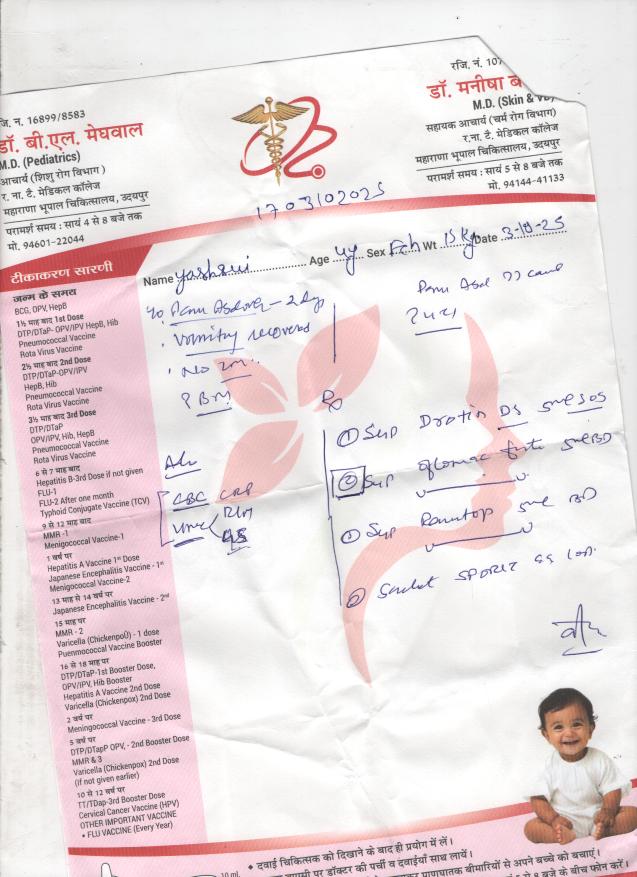 जि. न. 16899/8583
डॉ. बी.एल. मेघवाल
M.D. (Pediatrics)
आचार्य (शिशु रोग विभाग)
र. ना. टै. मेडिकल कॉलेज
महाराणा भूपाल चिकित्सालय, उदयपुर
परामर्श समय : सायं 4 से 8 बजे तक
मो. 94601-22044
रजि. नं. 107
डॉ. मनीषा ब
M.D. (Skin & VD)
सहायक आचार्य (चर्म रोग विभाग)
र.ना. टै. मेडिकल कॉलेज
महाराणा भूपाल चिकित्सालय, उदयपुर
परामर्श समय : सायं 5 से 8 बजे तक
मो. 94144-41133
1703102025
Name Yashasvi Age 4y Sex Fch Wt 15 kg Date 3-10-25
टीकाकरण सारणी
जन्म के समय
BCG, OPV, HepB
1½ माह बाद 1st Dose
DTP/DTaP- OPV/IPV HepB, Hib
Pneumococcal Vaccine
Rota Virus Vaccine
2½ माह बाद 2nd Dose
DTP/DTaP-OPV/IPV
HepB, Hib
Pneumococcal Vaccine
Rota Virus Vaccine
3½ माह बाद 3rd Dose
DTP/DTaP
OPV/IPV, Hib, HepB
Pneumococcal Vaccine
Rota Virus Vaccine
6 से 7 माह बाद
Hepatitis B-3rd Dose if not given
FLU-1
FLU-2 After one month
Typhoid Conjugate Vaccine (TCV)
9 से 12 माह बाद
MMR -1
Menigococcal Vaccine-1
1 वर्ष पर
Hepatitis A Vaccine 1st Dose
Japanese Encephalitis Vaccine - 1st
Menigococcal Vaccine-2
13 माह से 14 वर्ष पर
Japanese Encephalitis Vaccine - 2nd
15 माह पर
MMR - 2
Varicella (Chickenpoü) - 1 dose
Puenmococcal Vaccine Booster
16 से 18 माह पर
DTP/DTaP-1st Booster Dose,
OPV/IPV, Hib Booster
Hepatitis A Vaccine 2nd Dose
Varicella (Chickenpox) 2nd Dose
2 वर्ष पर
Meningococcal Vaccine - 3rd Dose
5 वर्ष पर
DTP/DTapP OPV, - 2nd Booster Dose
MMR & 3
Varicella (Chickenpox) 2nd Dose
(if not given earlier)
10 से 12 वर्ष पर
TT/TDap-3rd Booster Dose
Cervical Cancer Vaccine (HPV)
OTHER IMPORTANT VACCINE
• FLU VACCINE (Every Year)
Pain - 2 days
Vomiting recovered
No
Adv
CBC CRP
Pain
Rx
① Syp Drotin DS 5ml SOS
② Syp Oflomac forte 5ml BD
③ Syp Rantop 5ml BD
④ Sachet
10 ml
• दवाई चिकित्सक को दिखाने के बाद ही प्रयोग में लें।
पर डॉक्टर की पर्ची व दवाईयाँ साथ लायें।
बीमारियों से अपने बच्चे को बचाएं।
8 बजे के बीच फोन करें।